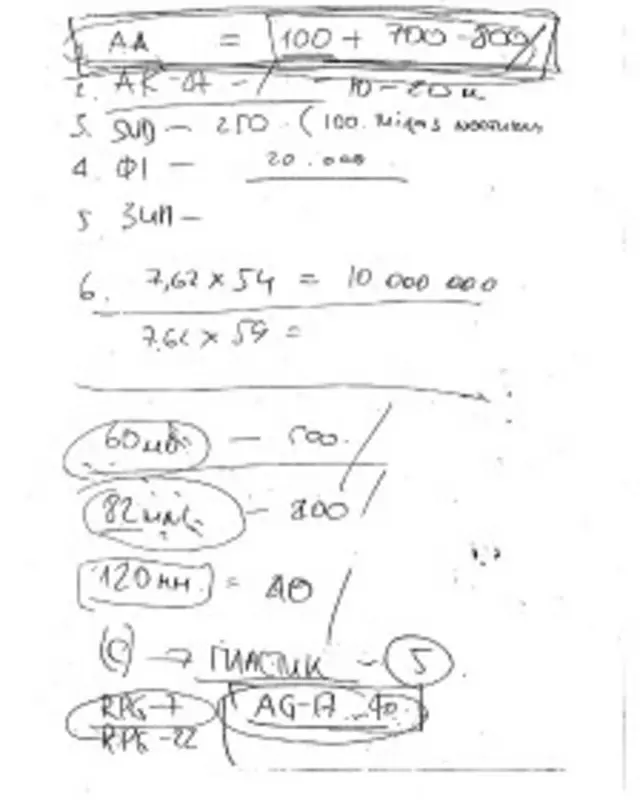 AA = 100 + 700-800
2. AK-47 - 10-20 м
3. SVD - 250. (100.
4. ФІ - 20.000
5 ЗИП -
6. 7,62 x 54 = 10 000 000
7,62 x 59 =
60мм - 500.
82мм - 800
120мм = 40
(C) → ПЛАСТИК - 5
RPG-7 AG-17 40
RPG-22